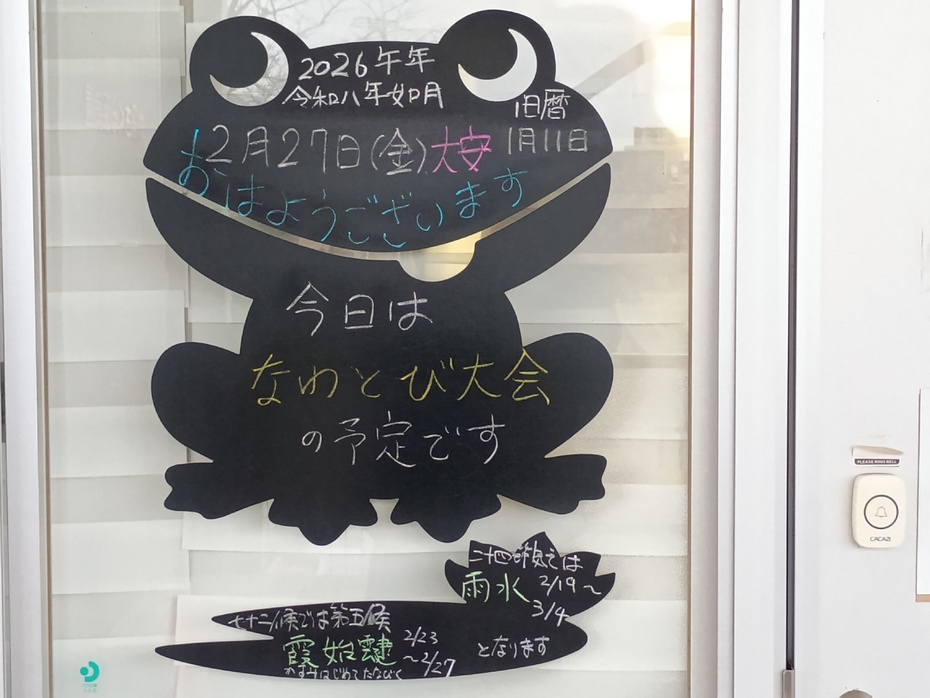 2026午年
令和八年如月
旧暦
1月11日
2月27日(金)大安
おはようございます
今日は
なわとび大会
の予定です
二十四節気では
雨水 2/19〜
3/4
七十二候では第五候
霞始靆 2/23
〜2/27
かすみはじめてたなびく
となります
PLEASE RING BELL
CACAZI